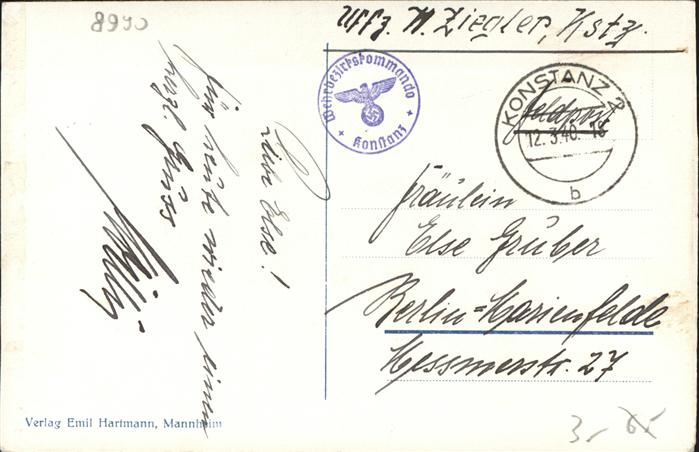 8990
Uffz. W. Ziegler, Kstz.
Wehrbezirkskommando
Konstanz
KONSTANZ 2
Feldpost
12.3.40.-18
b
Liebe Else!
für heute wieder einen
herzl. Gruss
Willi
Fräulein
Else Gruber
Berlin=Marienfelde
Messmerstr. 27
Verlag Emil Hartmann, Mannheim
3,- 65